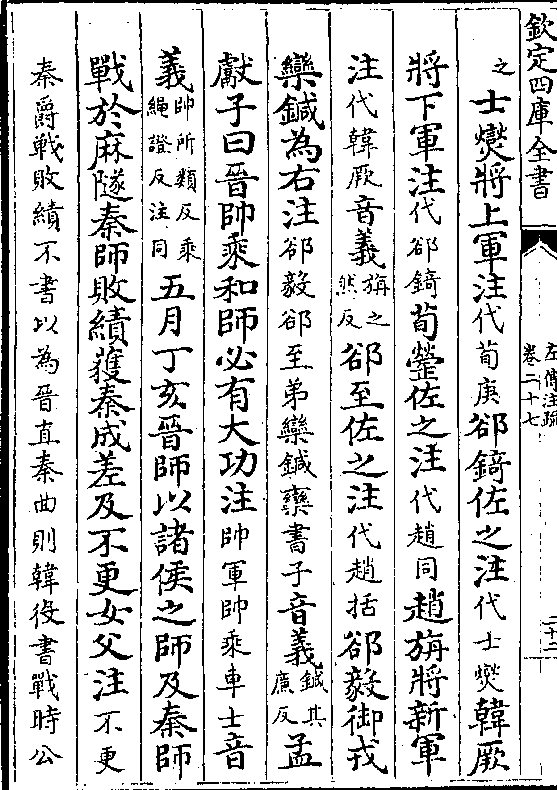 欽定四庫全書
左傳注疏
卷二十七
二十二
之士燮將上軍注代荀庚郤錡佐之注代士燮韓厥
將下軍注代郤錡荀罃佐之注代趙同趙旃將新軍
注代韓厥音義旃之然反郤至佐之注代趙括郤毅御戎
欒鍼為右注郤毅郤至弟欒鍼欒書子音義鍼其廉反孟
獻子曰晉帥乘和師必有大功注帥軍帥乘車士音
義帥所類反乘繩證反注同五月丁亥晉師以諸侯之師及秦師
戰於麻隧秦師敗績獲秦成差及不更女父注不更
秦爵戰敗績不書以為晉直秦曲則韓役書戰時公